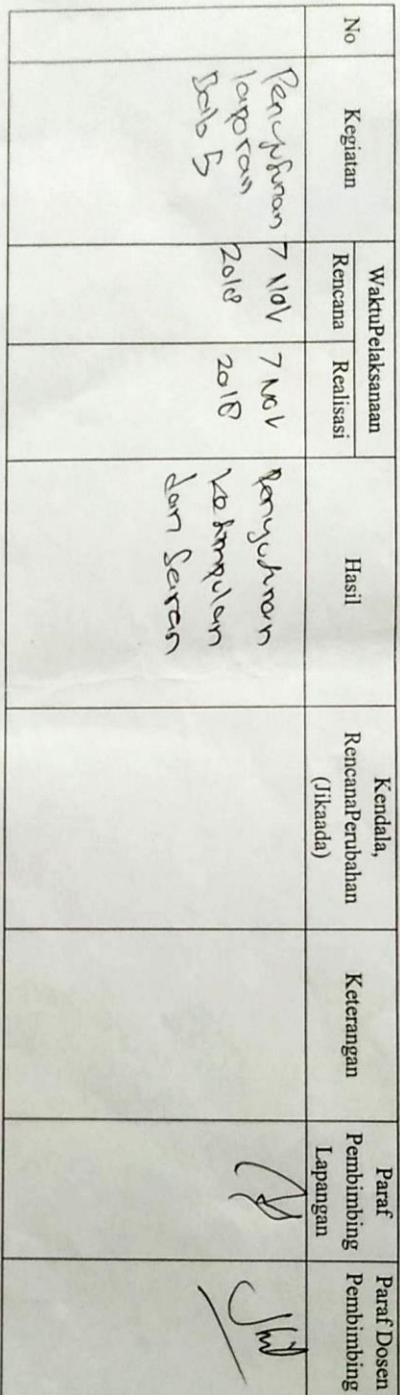 No
Kegiatan
WaktuPelaksanaan
Rencana
Realisasi
Hasil
Kendala,
RencanaPerubahan
(Jikaada)
Keterangan
Paraf
Pembimbing
Lapangan
Paraf Dosen
Pembimbing
Penyusunan
laporan
Bab 5
7 Nov
2018
7 Nov
2018
Penyusunan
kesimpulan
dan Saran